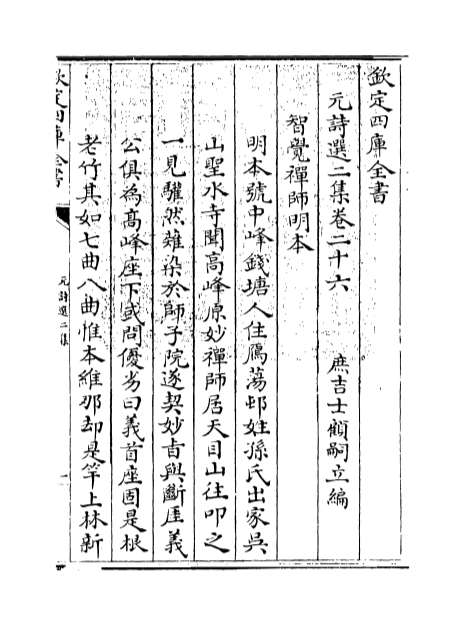 欽定四庫全書
元詩選二集卷二十六
庶吉士顧嗣立編
智覺禪師明本
明本號中峰錢塘人住鴈蕩邨姓孫氏出家吳
山聖水寺聞高峰原妙禪師居天目山往叩之
一見驩然薙染於師子院遂契妙㫖與斷厓義
公俱為髙峰座下或問優劣曰義首座固是根
老竹其如七曲八曲惟本維那却是竿上林新
欽定四庫全書
元詩選二集
一